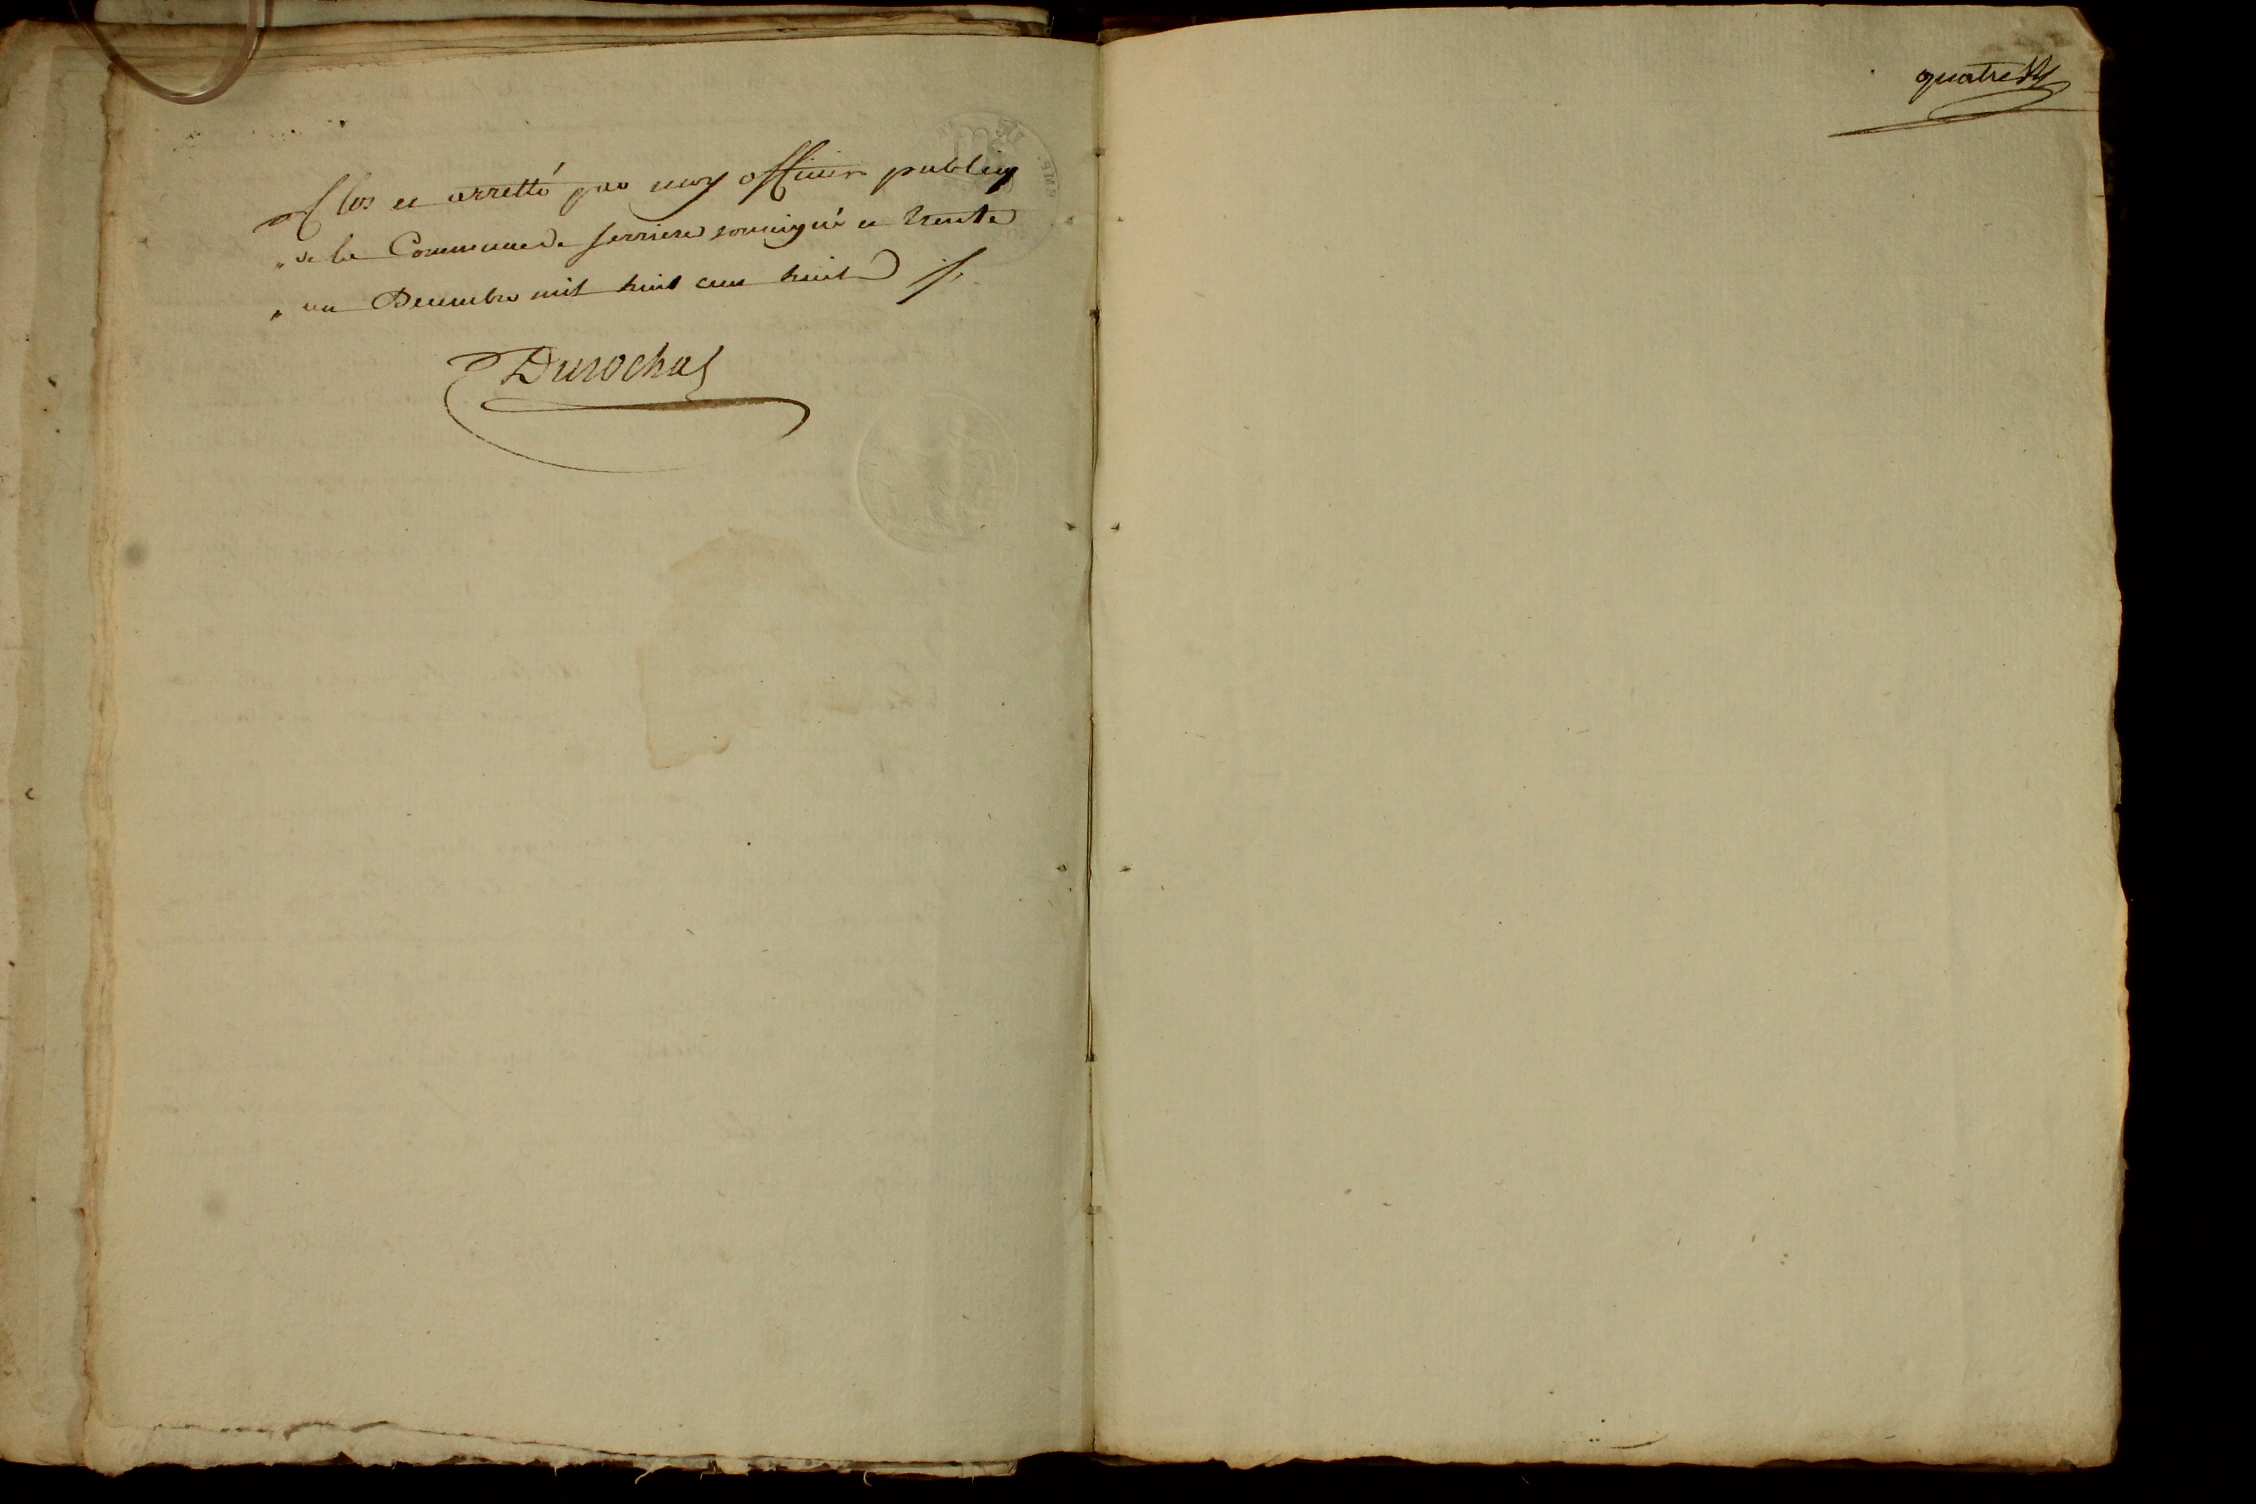 Clos et arretté par moy officier public
de la Commune de Serrieres soussigné ce trente
un Decembre mil huit cent huit
Durochas
quatre